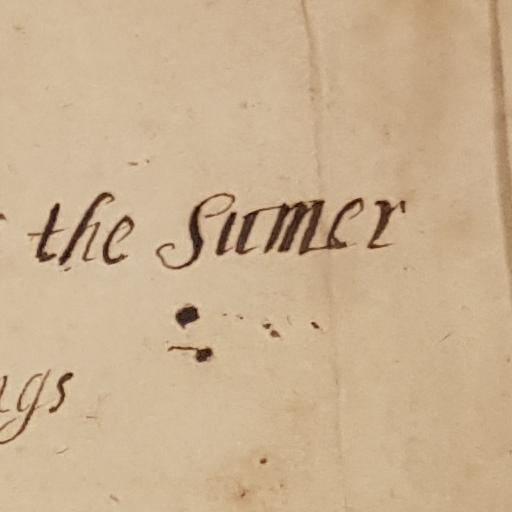 the Sumer
ngs